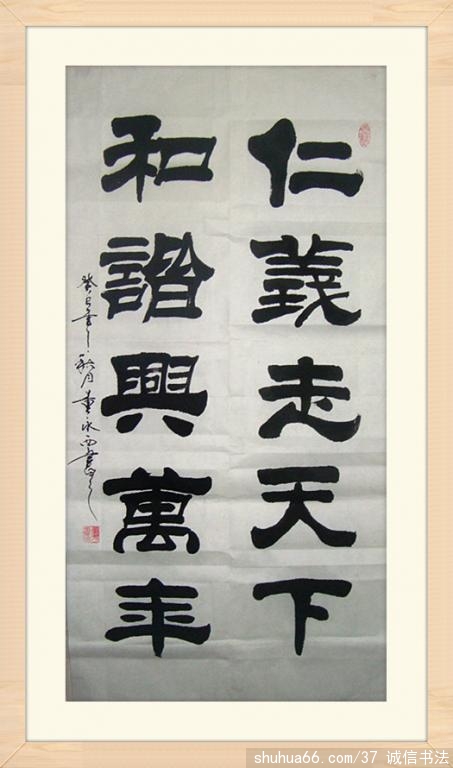 仁義走天下
和諧興萬年
癸巳年之秋月董永西書之
shuhua66.com/37 诚信书法